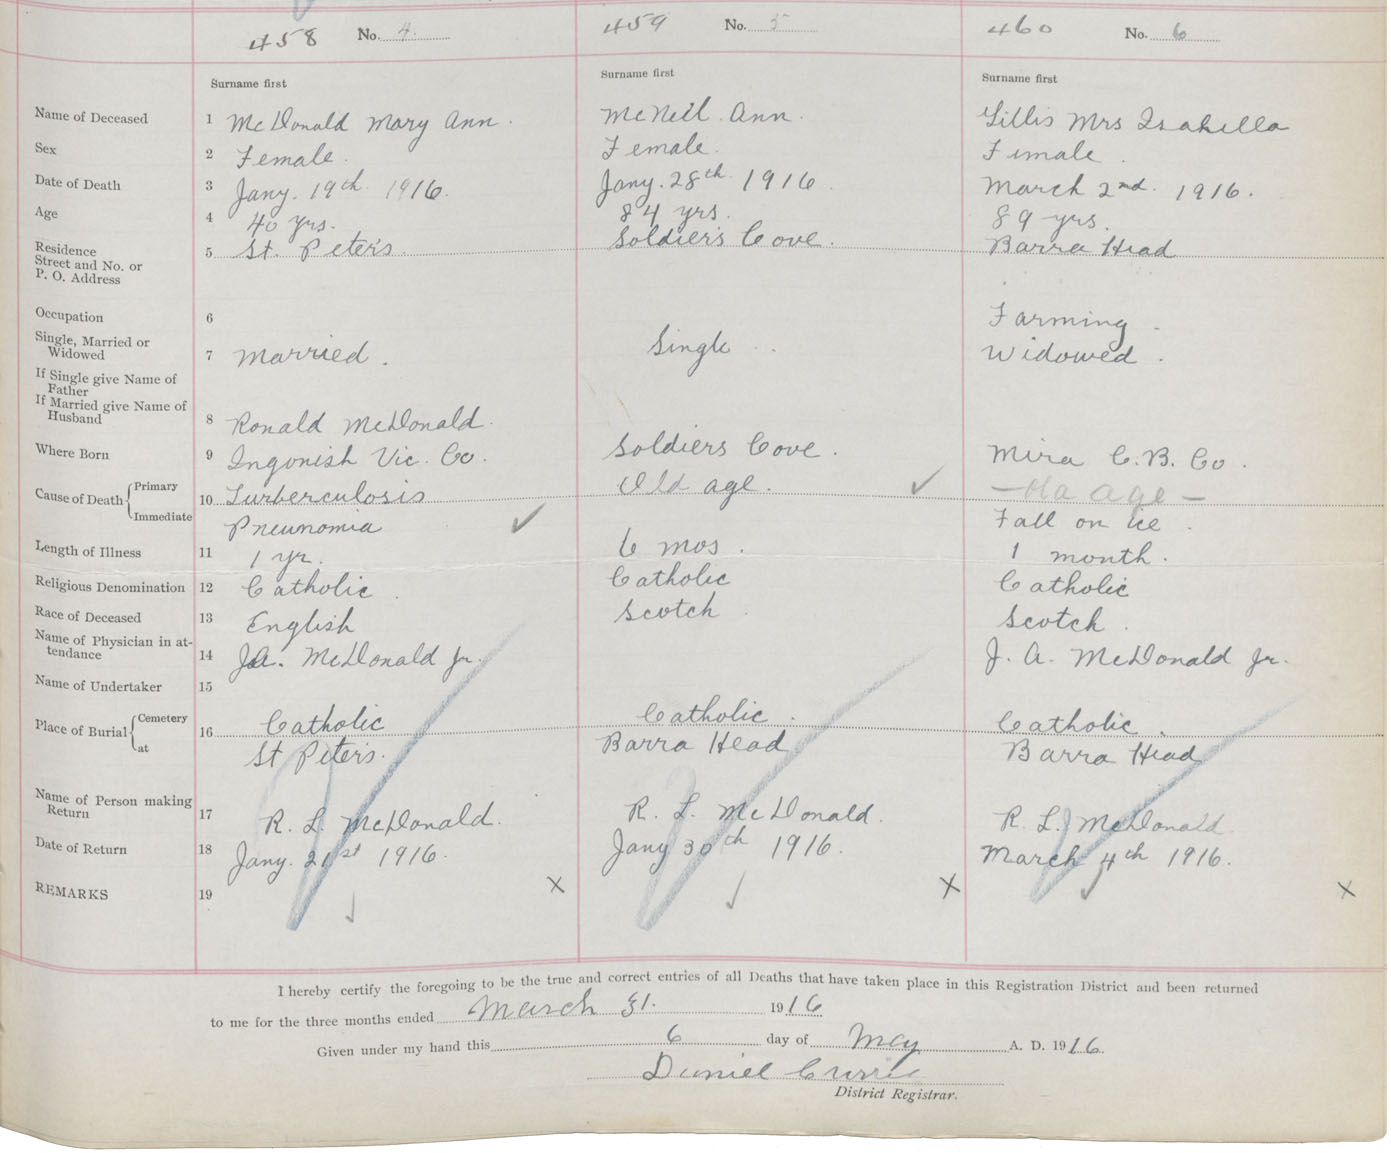 458 No. 4. 459 No. 5 460 No. 6
Surname first Surname first Surname first
Name of Deceased 1 McDonald Mary Ann. McNeil. Ann. Gillis Mrs Isabella
Sex 2 Female. Female. Female.
Date of Death 3 Jany. 19th 1916. Jany. 28th 1916. March 2nd. 1916.
Age 4 40 yrs. 84 yrs. 89 yrs.
Residence
Street and No. or
P. O. Address 5 St. Peter's. Soldier's Cove. Barra Head
Occupation 6 Farming.
Single, Married or
Widowed 7 Married. Single.. Widowed.
If Single give Name of
Father
If Married give Name of
Husband 8 Ronald McDonald.
Where Born 9 Ingonish Vic. Co. Soldiers Cove. Mira C.B. Co.
Cause of Death Primary 10 Turberculosis Old age. age -
Immediate Pneumonia Fall on ice.
Length of Illness 11 1 yr. 6 mos. 1 month.
Religious Denomination 12 Catholic. Catholic Catholic
Race of Deceased 13 English Scotch Scotch.
Name of Physician in at-
tendance 14 J.A. McDonald Jr. J. A. McDonald Jr.
Name of Undertaker 15
Place of Burial Cemetery 16 Catholic Catholic. Catholic.
at St Peter's. Barra Head Barra Head
Name of Person making
Return 17 R. L. McDonald. R. L. McDonald. R. L. McDonald.
Date of Return 18 Jany. 21st 1916. Jany 30th 1916. March 4th 1916.
REMARKS 19 X X X
I hereby certify the foregoing to be the true and correct entries of all Deaths that have taken place in this Registration District and been returned
to me for the three months ended March 31. 1916
Given under my hand this 6 day of May A. D. 1916.
Daniel Currie
District Registrar.